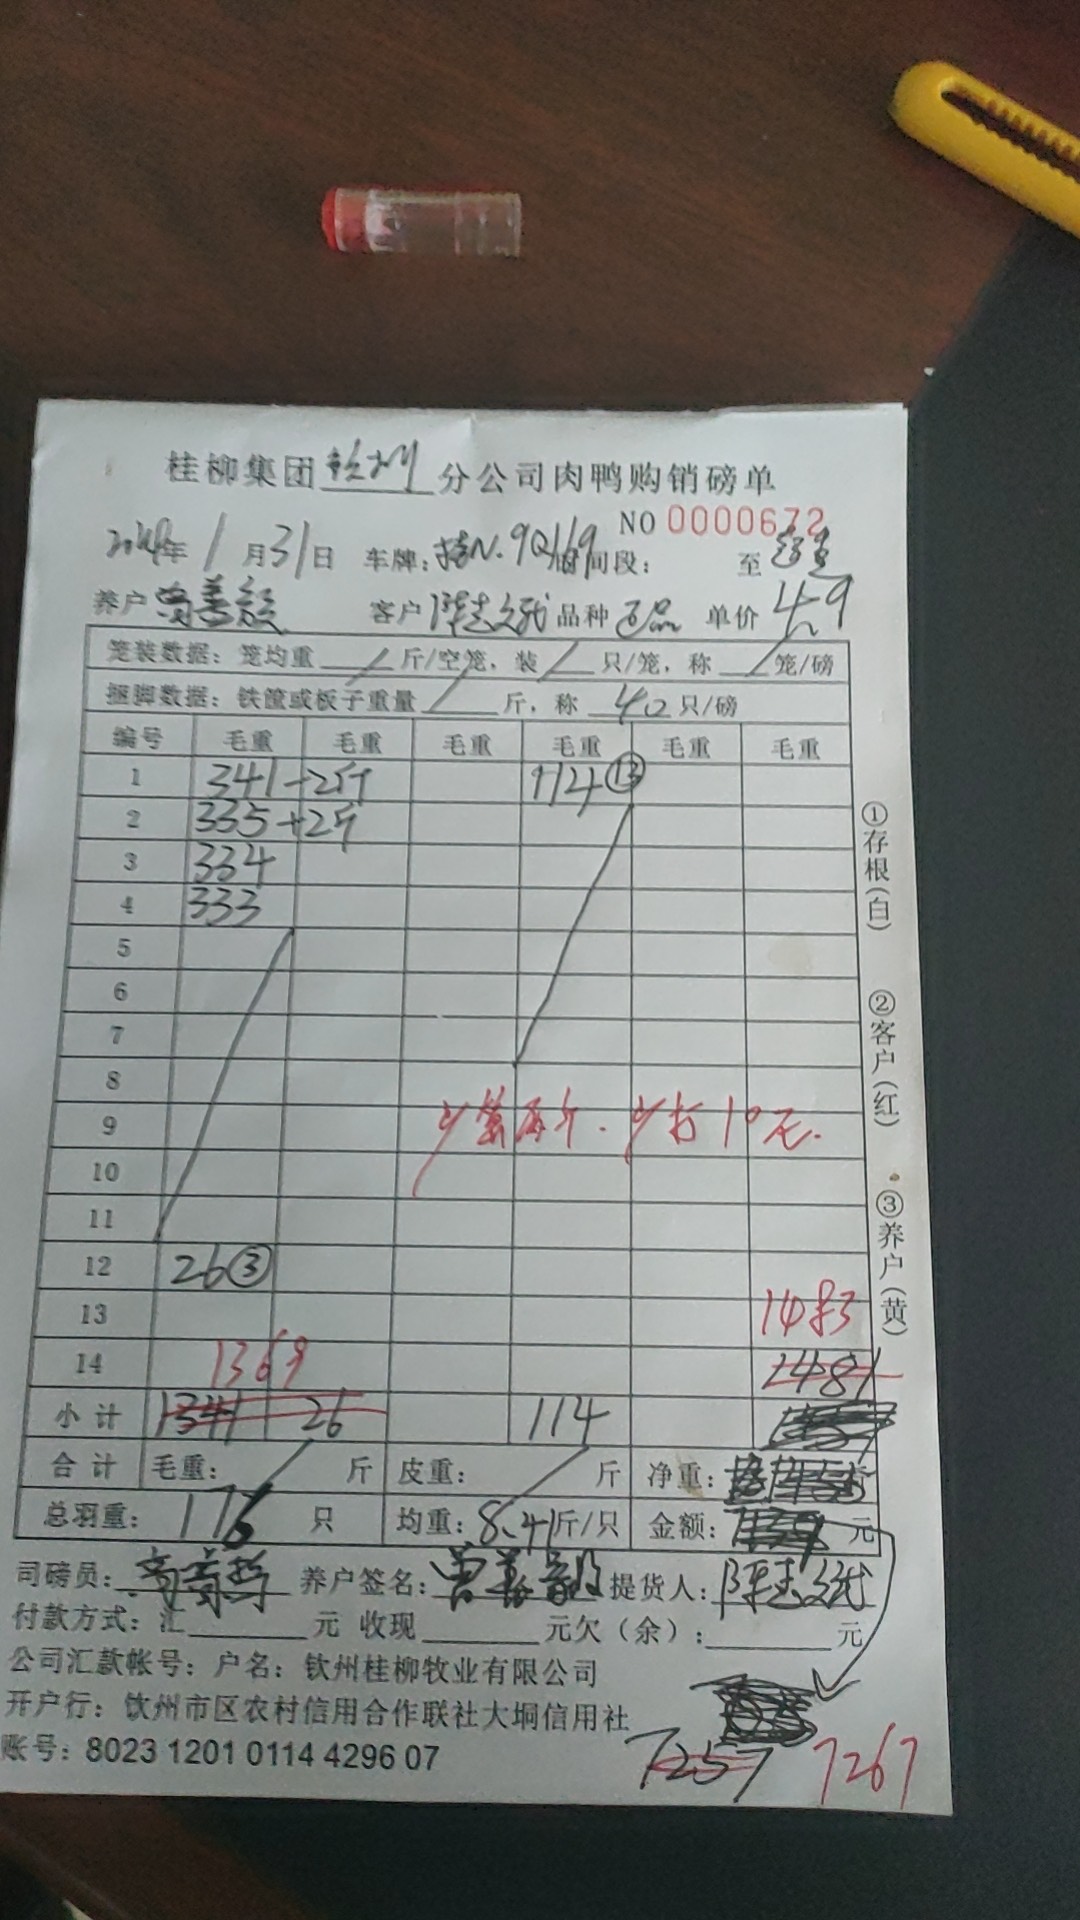 桂柳集团钦州分公司肉鸭购销磅单
NO 0000672
年1月31日 车牌:桂N.9Q119 时间段: 至
养户曾善毅 客户陈志 品种 正品 单价4.9
笼装数据:笼均重 / 斤/空笼,装 / 只/笼,称 / 笼/磅
捆脚数据:铁筐或板子重量 / 斤,称 40 只/磅
编号 毛重 毛重 毛重 毛重 毛重 毛重
1 341+2斤 114⑬
2 335+2斤
3 334
4 333
5
6
7
8
9 少算两斤.少打10元.
10
11
12 26③
13 1483
14 1369 1481
小计 1341 26 114
合计 毛重: 斤 皮重: 斤 净重:
总羽重: 176 只 均重:8.41斤/只 金额: 元
司磅员: 养户签名:曾善毅 提货人:陈志
付款方式:汇 元 收现 元欠(余): 元
公司汇款帐号:户名:钦州桂柳牧业有限公司
开户行:钦州市区农村信用合作联社大垌信用社
账号:8023 1201 0114 4296 07
7257 7267
①存根(白) ②客户(红) ③养户(黄)